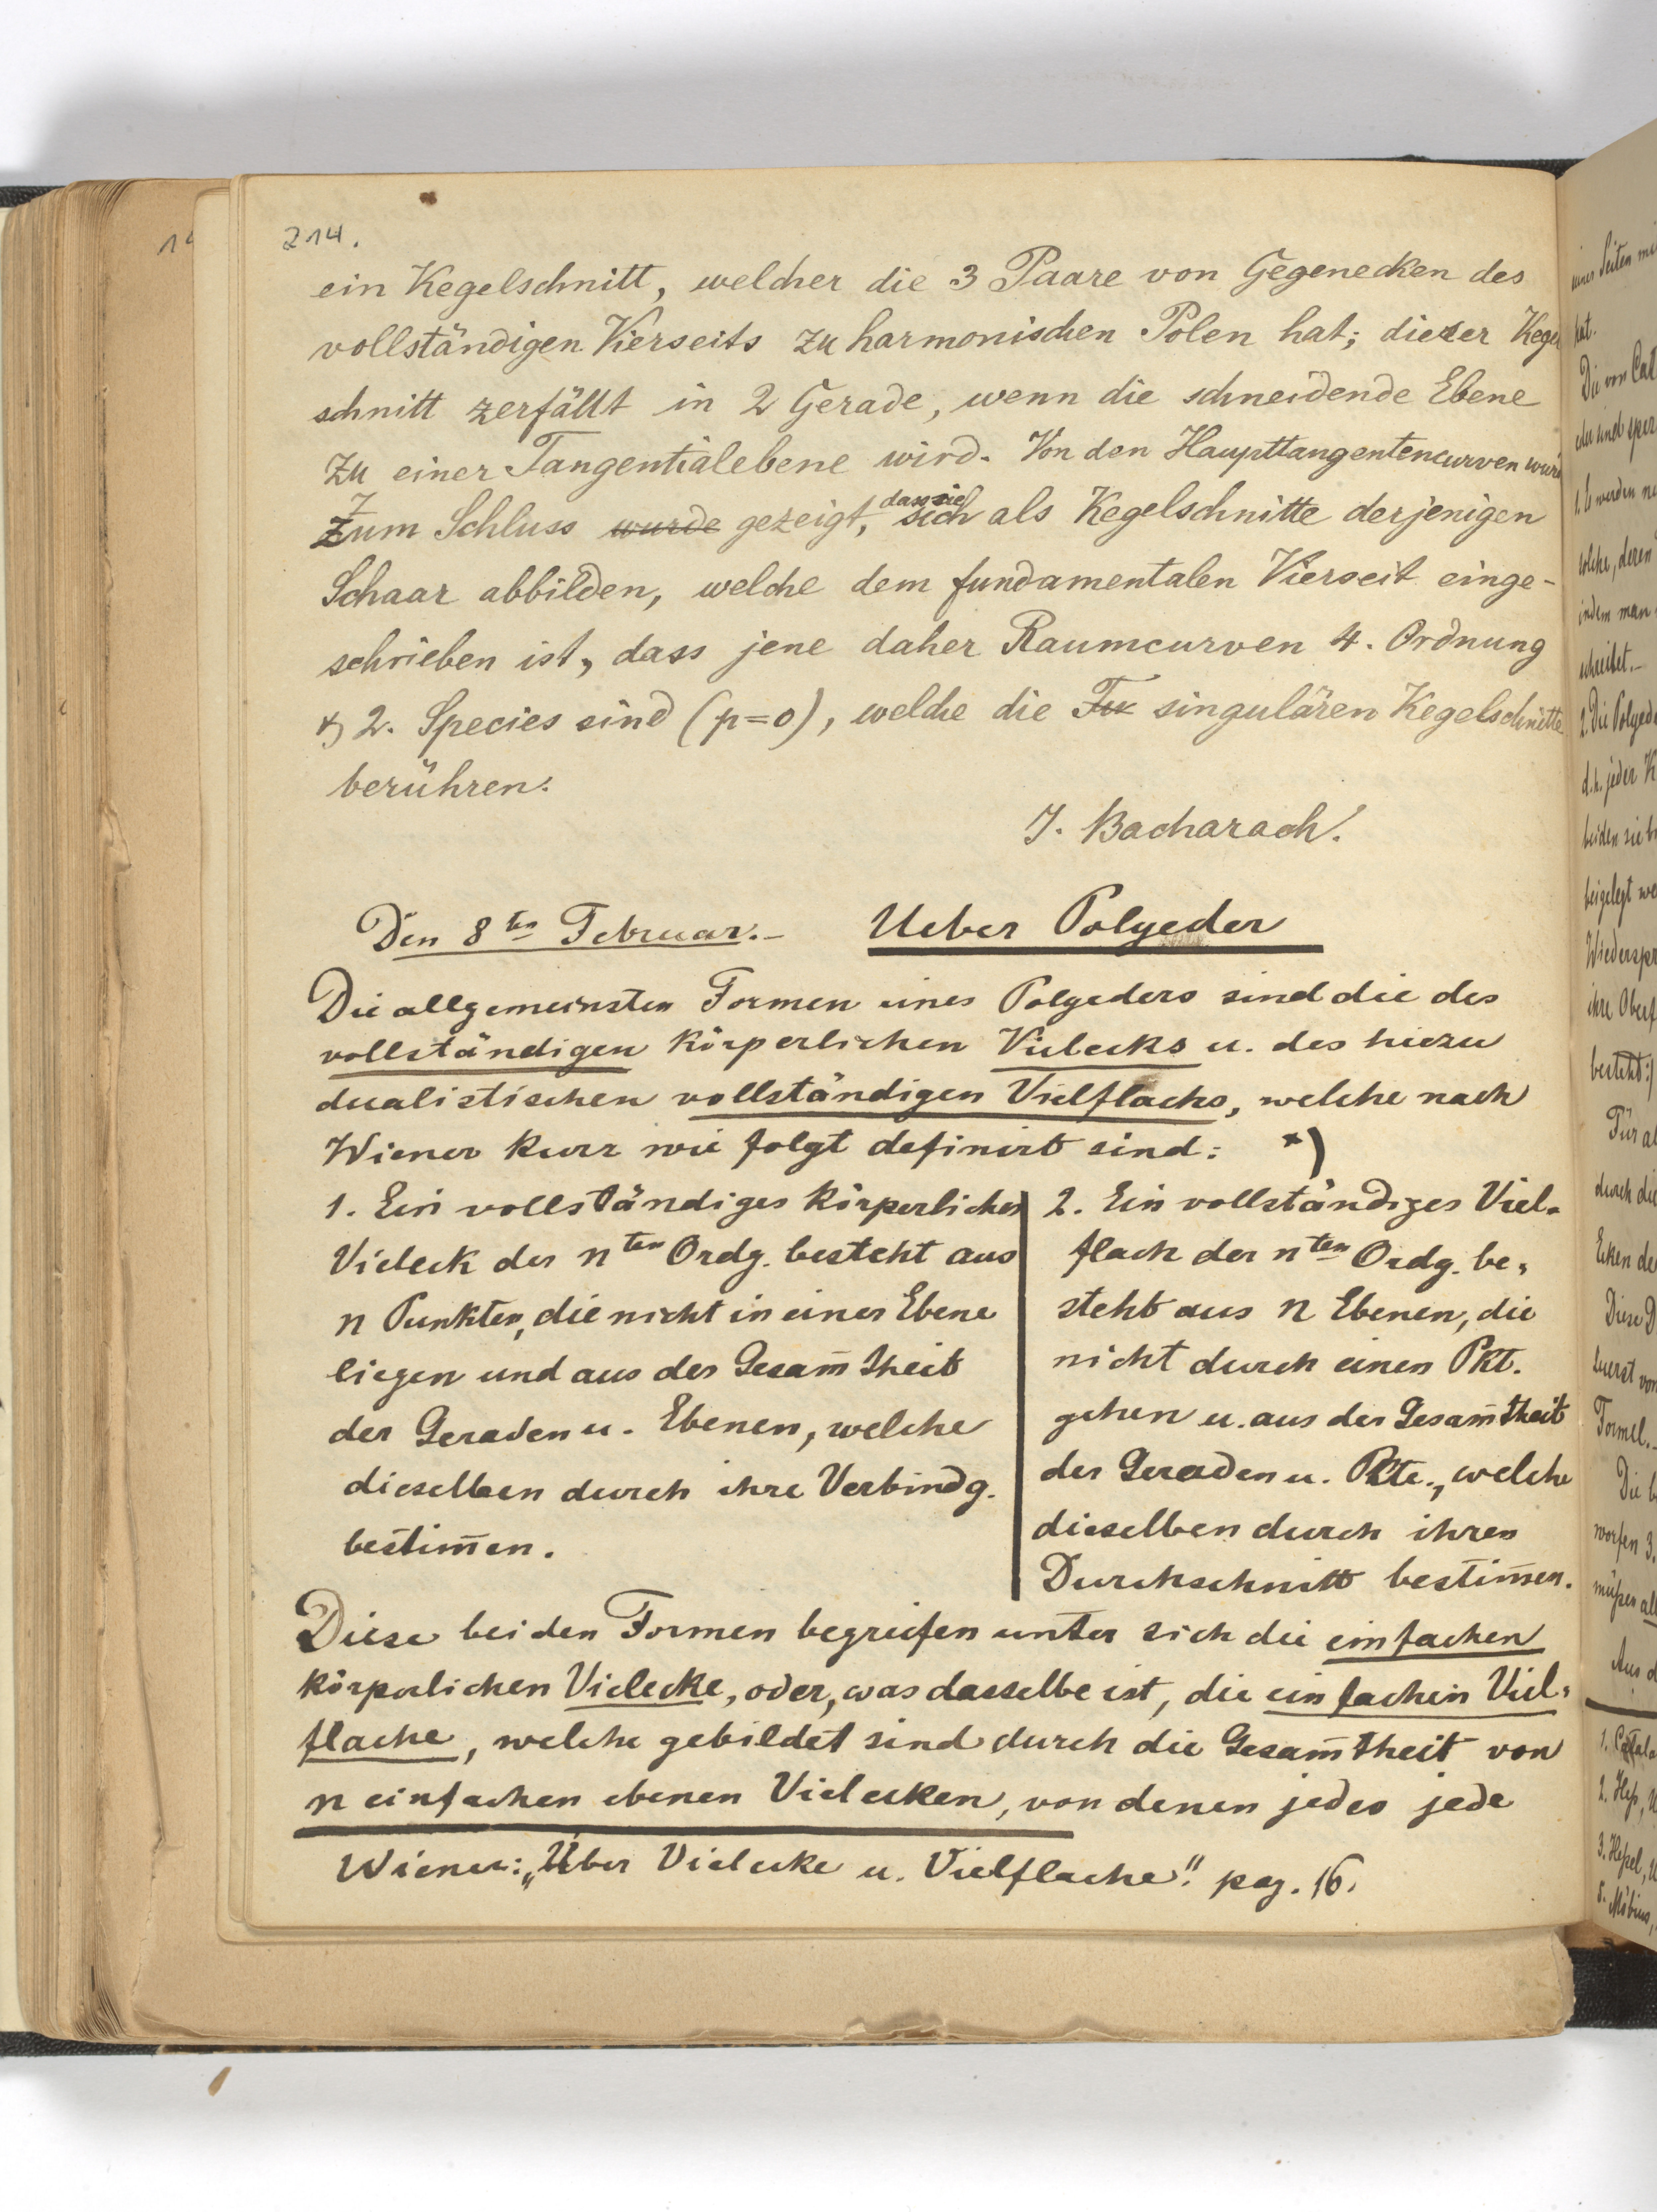 214.
ein Kegelschnitt, welcher die 3 Paare von Gegenecken des
vollständigen Vierseits zu harmonischen Polen hat; dieser Kegel
schnitt zerfällt in 2 Gerade, wenn die schneidende Ebene
zu einer Tangentialebene wird. Von den Haupttangentencurven wurde
Zum Schluss wurde gezeigt, dass sie sich als Kegelschnitte derjenigen
Schaar abbilden, welche dem fundamentalen Vierseit einge-
schrieben ist, dass jene daher Raumcurven 4. Ordnung
& 2. Species sind (p=0), welche die singulären Kegelschnitte
berühren.
J. Bacharach.
Den 8ten Februar.- Ueber Polyeder
Die allgemeinsten Formen eines Polyeders sind die des
vollständigen körperlichen Vielecks u. des hiezu
dualistischen vollständigen Vielflachs, welche nach
Wiener kurz wie folgt definirt sind: *)
1. Ein vollständiges körperliches
Vieleck der nten Ordg. besteht aus
n Punkten, die nicht in einer Ebene
liegen und aus der Gesam̅theit
der Geraden u. Ebenen, welche
dieselben durch ihre Verbindg.
bestim̅en.
2. Ein vollständiges Viel-
flach der nten Ordg. be-
steht aus n Ebenen, die
nicht durch einen Pkt.
gehen u. aus der Gesam̅theit
der Geraden u. Pkte., welche
dieselben durch ihren
Durchschnitt bestim̅en.
Diese beiden Formen begreifen unter sich die einfachen
körperlichen Vielecke, oder, was dasselbe ist, die einfachen Viel-
flache, welche gebildet sind durch die Gesam̅theit von
n einfachen ebenen Vielecken, von denen jedes jede
Wiener: „Über Vielecke u. Vielflache". pag. 16.